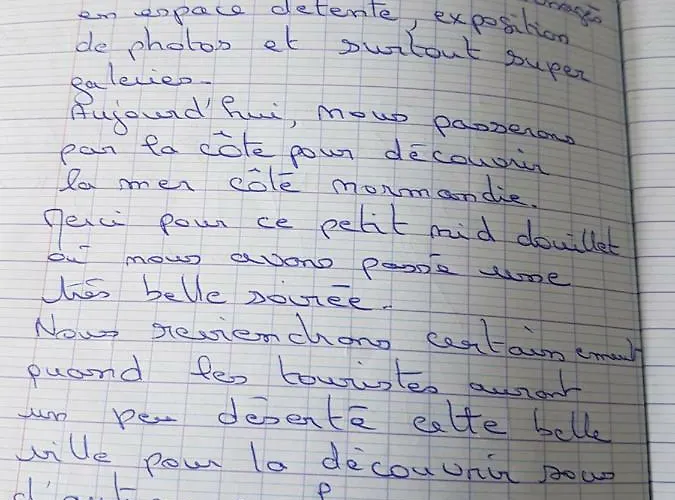 en espace detente, exposition
de photos et surtout super
galeries.
Aujourd'hui, nous passerons
par la côte pour découvrir
la mer côté normandie.
Merci pour ce petit nid douillet
où nous avons passé une
très belle soirée.
Nous reviendrons certainement
quand les touristes auront
un peu déserté cette belle
ville pour la découvrir sous